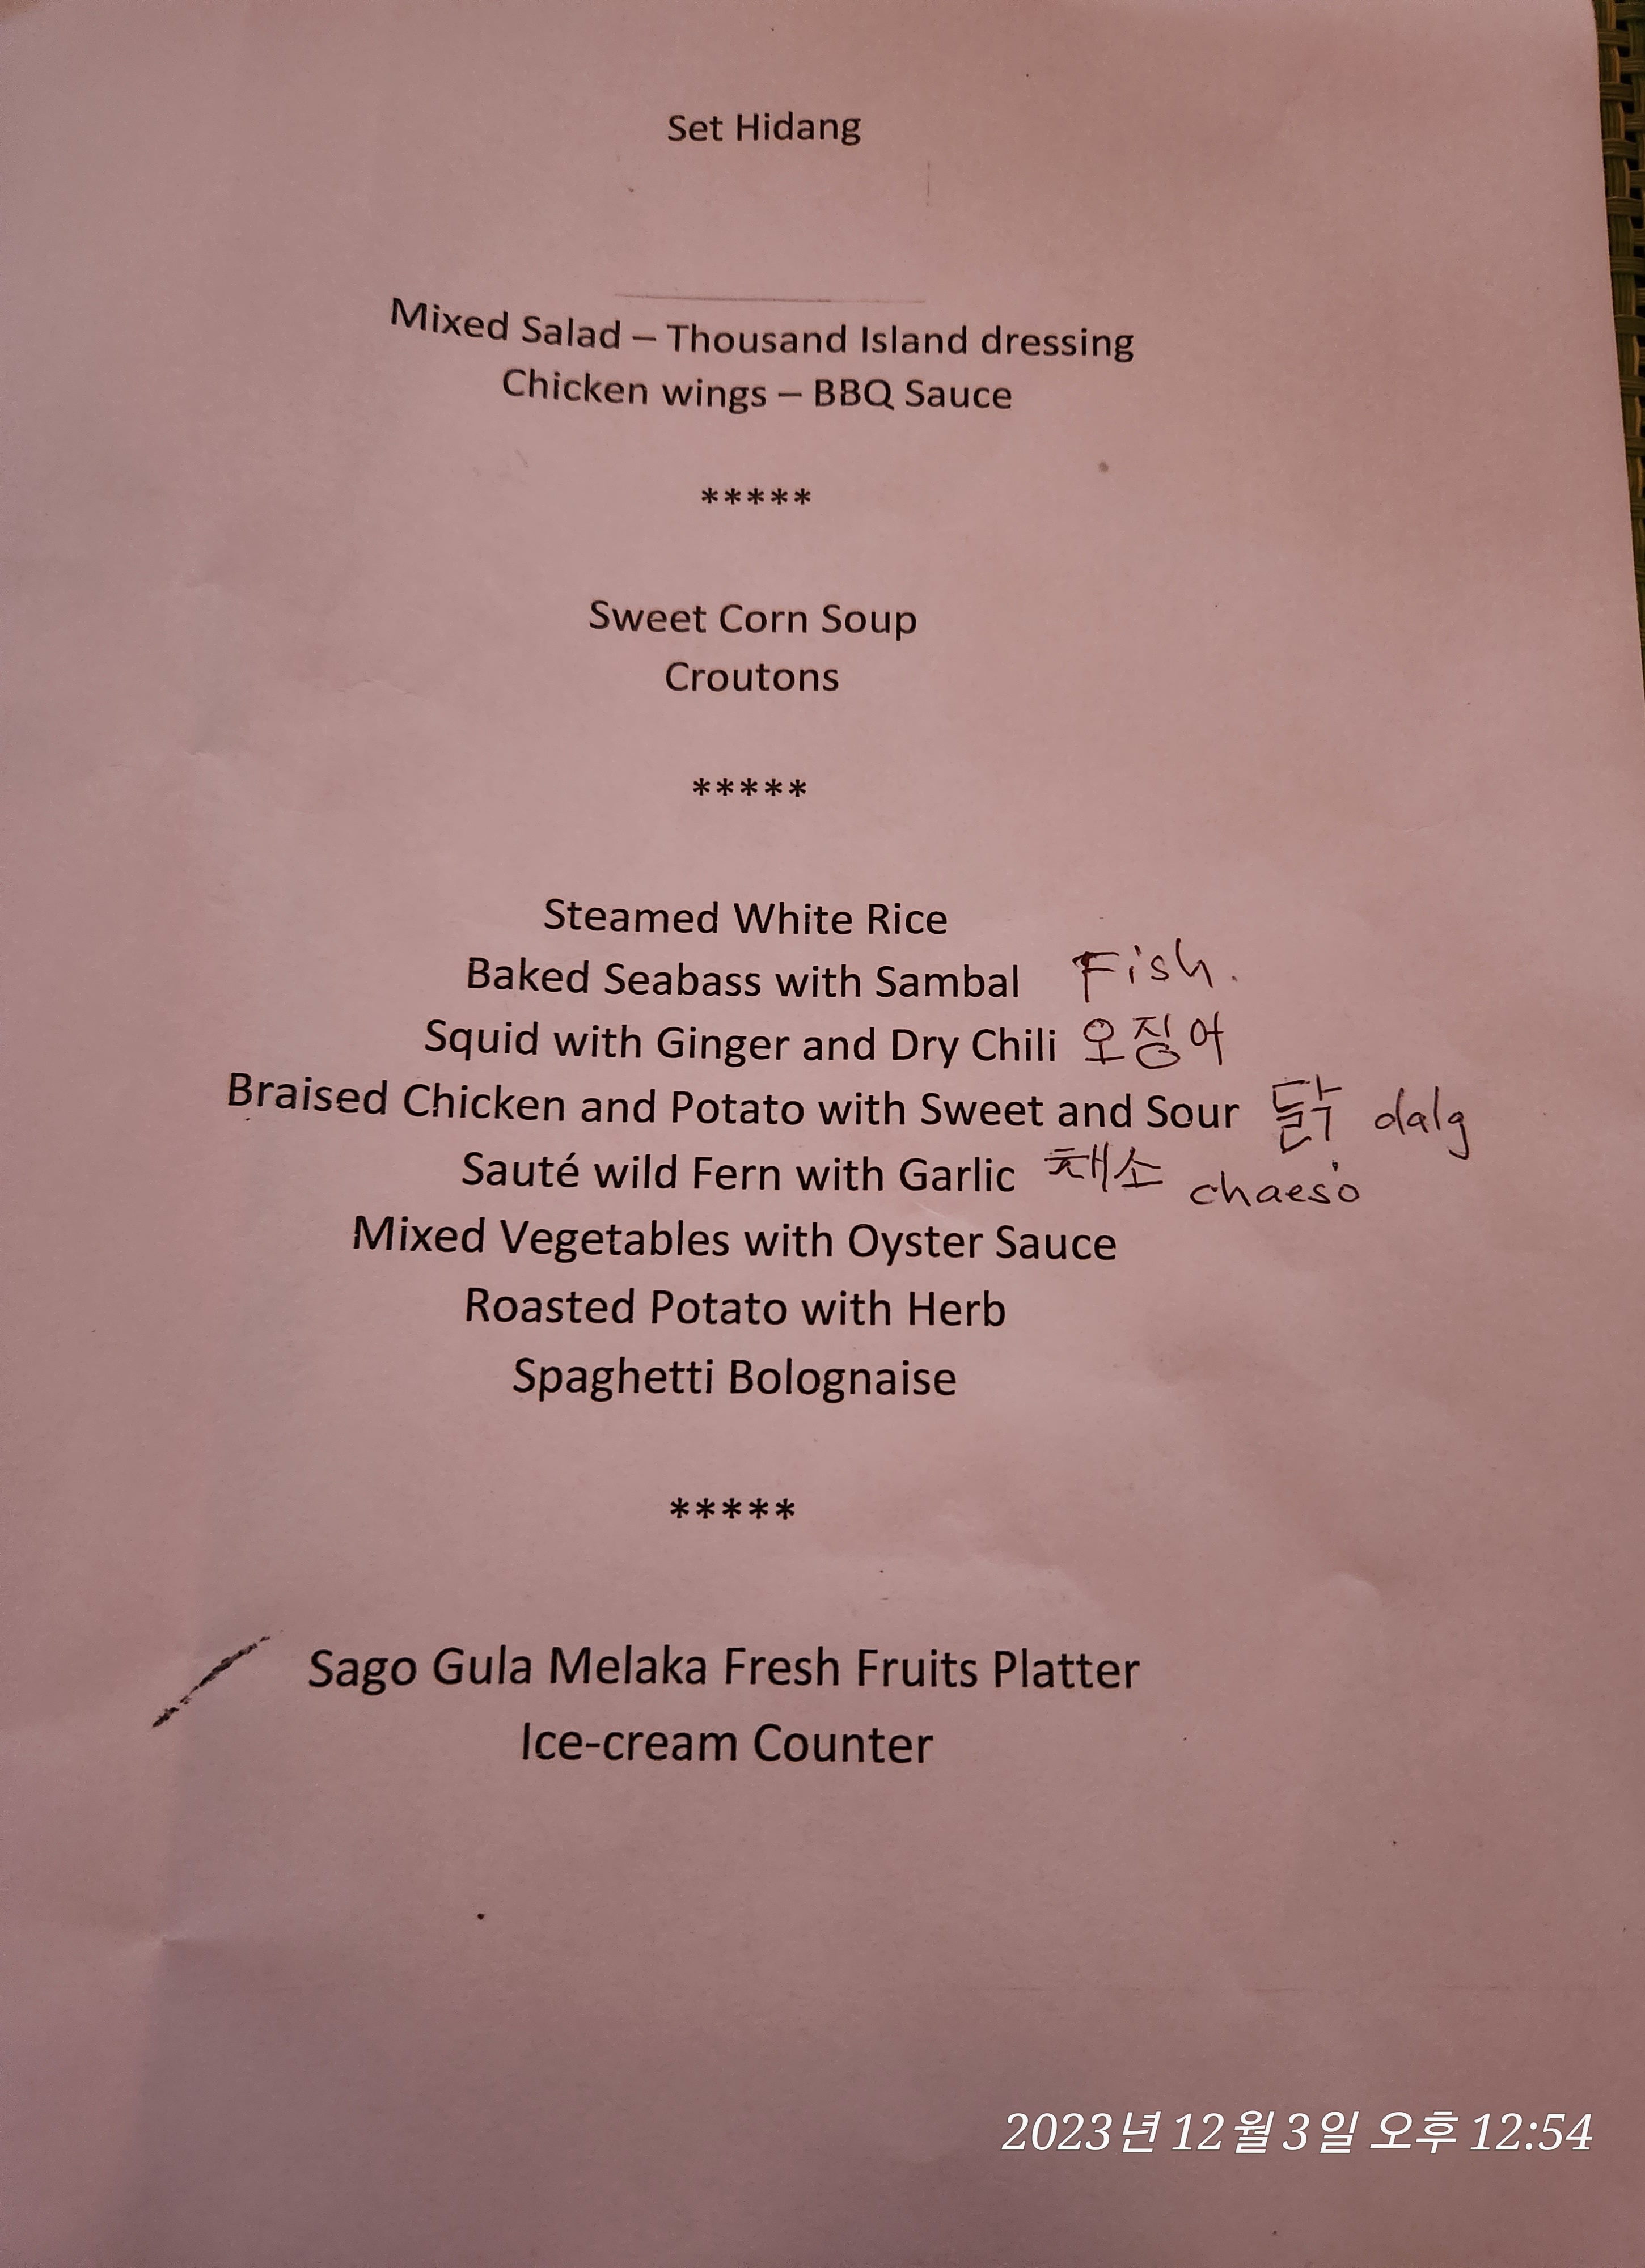 Set Hidang
Mixed Salad – Thousand Island dressing
Chicken wings – BBQ Sauce
*****
Sweet Corn Soup
Croutons
*****
Steamed White Rice
Baked Seabass with Sambal Fish.
Squid with Ginger and Dry Chili 오징어
Braised Chicken and Potato with Sweet and Sour 닭 dalg
Sauté wild Fern with Garlic 채소 chaeso
Mixed Vegetables with Oyster Sauce
Roasted Potato with Herb
Spaghetti Bolognaise
*****
Sago Gula Melaka Fresh Fruits Platter
Ice-cream Counter
2023년 12월 3일 오후 12:54